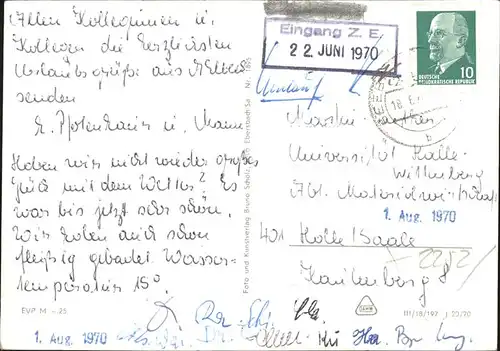 Allen Kolleginnen u.
Kollegen die herzlichsten
Urlaubsgrüße aus
senden
E. u. Mann
Haben wir nicht wieder großes
Glück mit dem Wetter? Es
war bis jetzt sehr schön.
Wir haben auch schon
fleißig gebadet Wasser-
temperatur 15°.
EVP M -,25
1. Aug. 1970
Foto und Kunstverlag Bruno Scholz, Eberstadt-Sa. Nr.
Eingang Z. E.
22. JUNI 1970
Umlauf
DEUTSCHE
DEMOKRATISCHE REPUBLIK
10
Martin Luther
Universität Halle-
Wittenberg
Abt. Materialwirtschaft
1. Aug. 1970
401 Halle/Saale
Kaulenberg 8
III/18/197 J 22/70